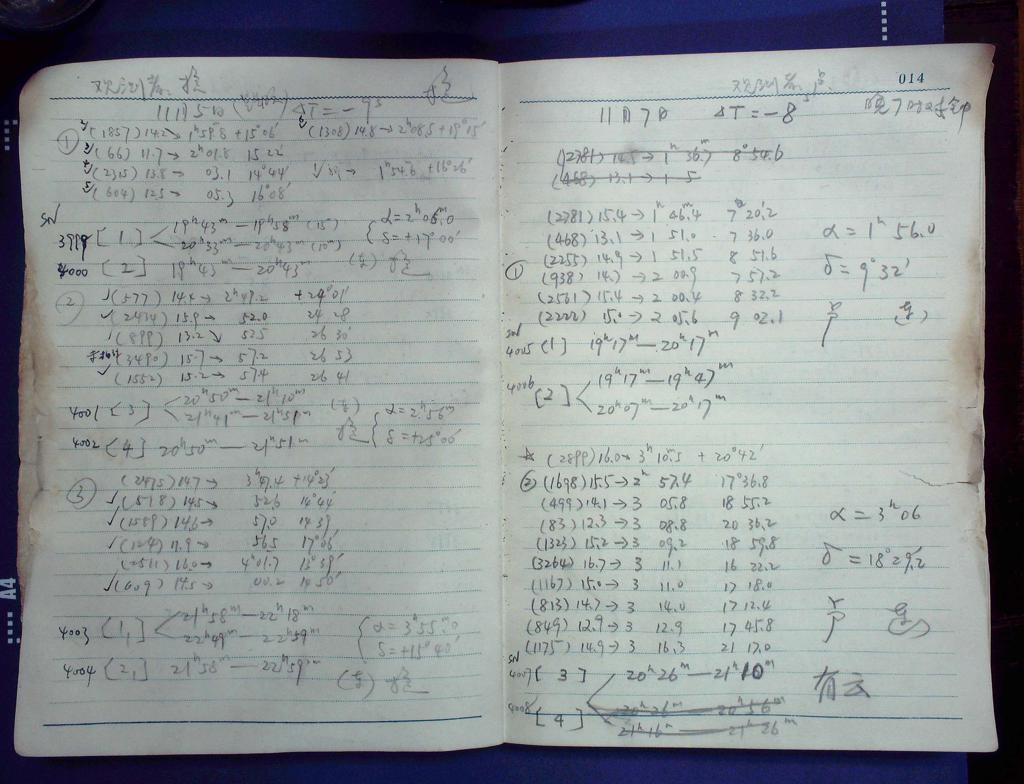 观测者:
11月5日 ΔT=-9s
① (1857) 14.2→ 1h59.8 +15°06' (1308) 14.8→ 2h08.5 +19°15'
(66) 11.7→ 2h01.8 15 22'
(2315) 13.8→ 03.1 14°44' 1h54.6 +16°26'
(604) 12.5→ 05.3 16°08'
SN
3999 [1] 19h43m—19h58m (15m) α=2h06m.0
20h33m—20h43m (10m) δ=+17°00'
4000 [2] 19h43m—20h43m
② √(577) 14.4→ 2h49.2 +24°01'
√(2434) 15.9→ 52.0 24 28
(899) 13.2 52.5 26 30'
(3490) 15.7→ 57.2 26 53
√(1552) 15.2→ 57.4 26 41
4001 [3] 20h50m—21h10m α=2h56m
21h41m—21h51m δ=+25°00'
4002 [4] 20h50m—21h51m
③ (2475) 14.7 3h47.4 +14°23'
√(518) 14.5 52.6 14°44'
√(1589) 14.6→ 57.0 14 39
√(124) 11.9→ 56.5 17°06'
(2511) 16.0→ 4h01.7 13°39'
√(609) 14.5→ 00.2 10 50'
4003 [1,] 21h58m—22h18m α=3h55m.0
22h49m—22h59m δ=+15°40'
4004 [2,] 21h58m—22h59m
014
观测者:
11月7日 ΔT=-8s 晚7时好钟
(2781) 14.5→1h 36.7 8°54.6
(468) 13.1→1 5
(2781) 15.4→1h 46.4 7°20.2
(468) 13.1→1 51.0 7 36.0 α=1h56.0
① (2255) 14.9→1 51.5 8 51.6
(938) 14.7→2 00.9 7 57.2 δ=9°32'
(2561) 15.4→2 00.4 8 32.2
(2222) 15.0→2 05.6 9 02.1
SN
4005 [1] 19h17m—20h17m
4006 [2] 19h17m—19h47m
20h07m—20h17m
(2899) 16.0→3h10.5 +20°42'
② (1698) 15.5→2h 57.4 17°36.8
(499) 14.1→3 05.8 18 55.2
(83) 12.3→3 08.8 20 36.2 α=3h06
(1323) 15.2→3 09.2 18 59.8
(3264) 16.7→3 11.1 16 22.2 δ=18°29.2
(1167) 15.0→3 11.0 17 18.0
(813) 14.7→3 14.0 17 12.4
(849) 12.9→3 12.9 17 45.8
(1175) 14.9→3 16.3 21 17.0
SN
4007 [3] 20h26m—21h10m 有云
4008 [4] 20h26m 20h56m
21h16m—21h26m
A4